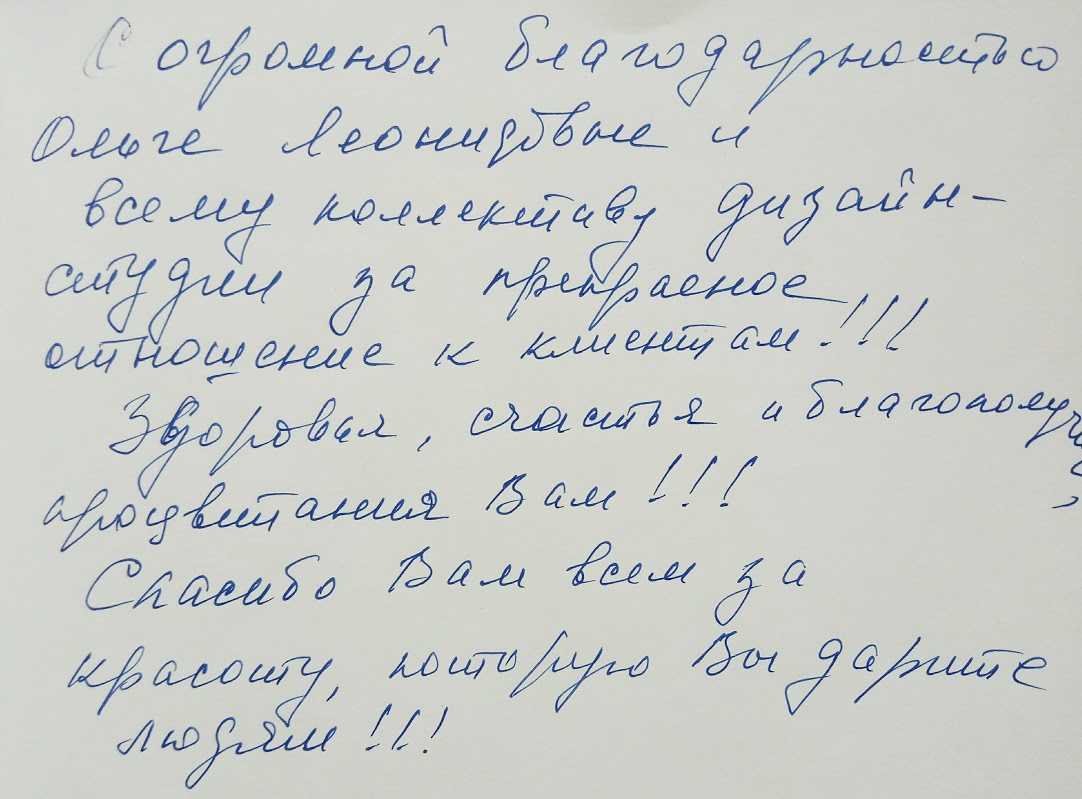 С огромной благодарностью
Ольге Леонидовне и
всему коллективу дизайн-
студии за прекрасное
отношение к клиентам!!!
Здоровья, счастья и благополучия,
процветания Вам!!!
Спасибо Вам всем за
красоту, которую Вы дарите
людям!!!